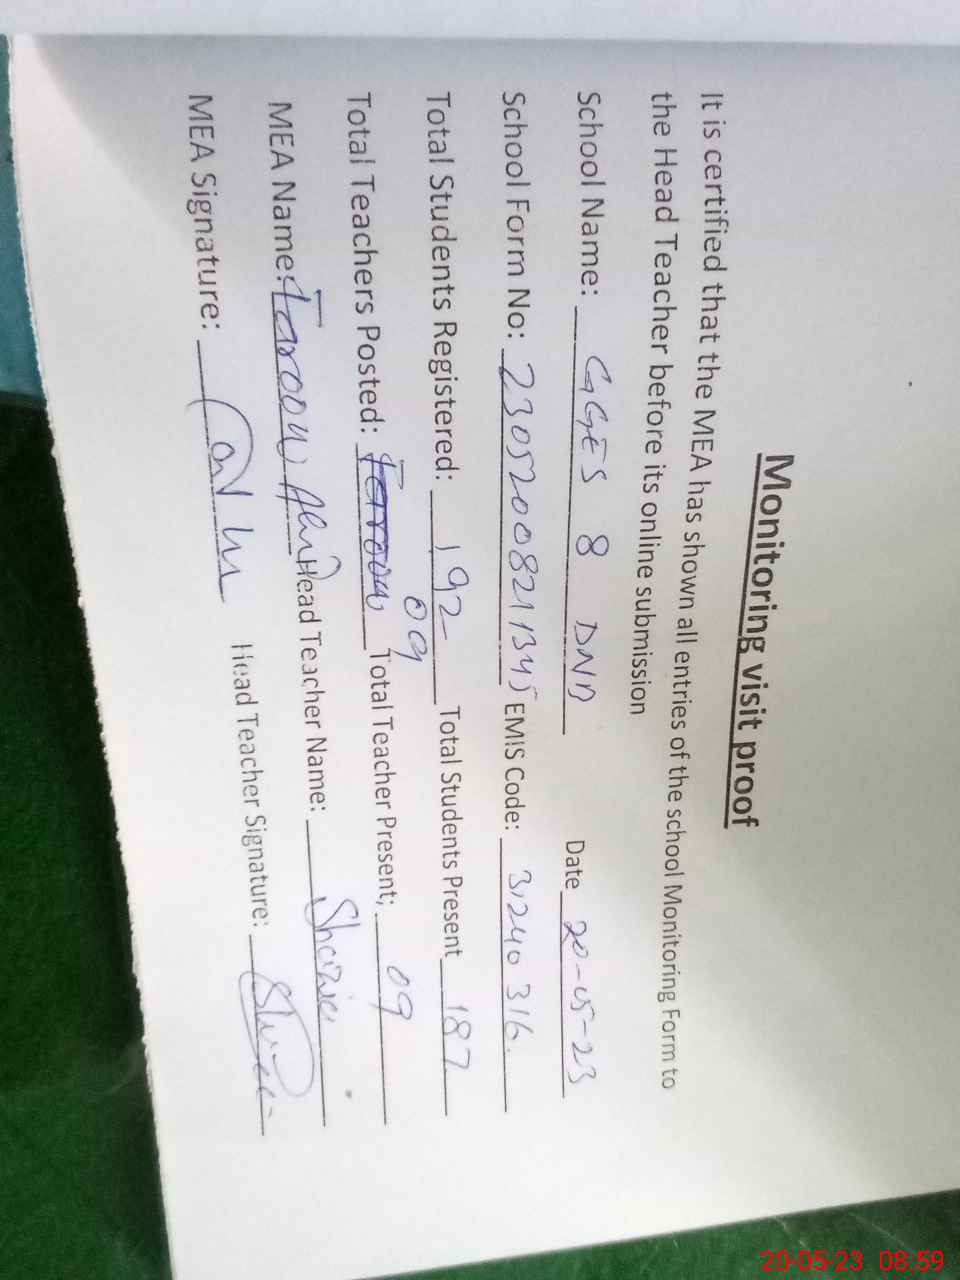 Monitoring visit proof
It is certified that the MEA has shown all entries of the school Monitoring Form to
the Head Teacher before its online submission
School Name: GGES 8 DNB Date 20-05-23
School Form No: 23052008211345 EMIS Code: 31240316
Total Students Registered: 192 Total Students Present 187
Total Teachers Posted: 09 Total Teacher Present; 09
MEA Name: Farooq Head Teacher Name: Shazia
MEA Signature: Head Teacher Signature:
20-05-23 08:59